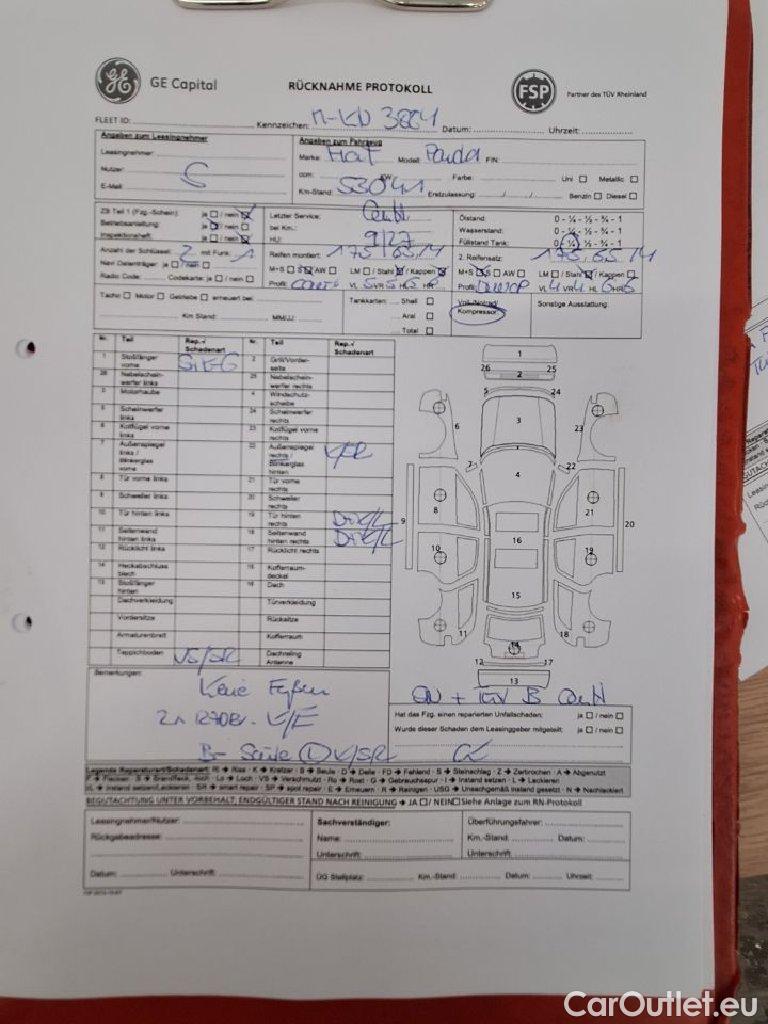 GE Capital
RÜCKNAHME PROTOKOLL
FSP
Partner des TÜV Rheinland
FLEET ID:
Kennzeichen: M-KN 3884
Datum:
Uhrzeit:
Angaben zum Leasingnehmer
Angaben zum Fahrzeug
Leasingnehmer:
Marke: Fiat Modell: Panda FIN:
Nutzer:
ccm: KW Farbe: Uni Metallic
E-Mail:
Km-Stand: 53041 Erstzulassung: Benzin Diesel
ZB Teil 1 (Fzg.-Schein): ja / nein
Betriebsanleitung: ja / nein
Inspektionsheft: ja / nein
Letzter Service:
bei Km.:
HU:
Ölstand: 0 - ¼ - ½ - ¾ - 1
Wasserstand: 0 - ¼ - ½ - ¾ - 1
Füllstand Tank: 0 - ¼ - ½ - ¾ - 1
Anzahl der Schlüssel: 2 mit Funk: 1
Navi Datenträger: ja / nein
Radio Code: Codekarte: ja / nein
Reifen montiert: 175/65/14
M+S S AW LM / Stahl / Kappen
2. Reifensatz: 175/65/14
M+S S AW LM / Stahl / Kappen
Tacho Motor Getriebe erneuert bei:
Km Stand: MM/JJ:
Tankkarten: Shell
Aral
Total
Kompressor
Sonstige Ausstattung:
Nr. Teil Rep.-/ Schadenart Nr. Teil Rep.-/ Schadenart
1 Stoßfänger vorne
2 Grill/Vorderseite
26 Nebelscheinwerfer links
25 Nebelscheinwerfer rechts
3 Motorhaube
4 Windschutzscheibe
5 Scheinwerfer links
24 Scheinwerfer rechts
6 Kotflügel vorne links
23 Kotflügel vorne rechts
7 Außenspiegel links / Blinkerglas vorne
22 Außenspiegel rechts / Blinkerglas hinten
8 Tür vorne links
21 Tür vorne rechts
9 Schweller links
20 Schweller rechts
10 Tür hinten links
19 Tür hinten rechts
11 Seitenwand hinten links
18 Seitenwand hinten rechts
12 Rücklicht links
17 Rücklicht rechts
14 Heckabschlussblech
15 Kofferraumdeckel
13 Stoßfänger hinten
16 Dach
Dachverkleidung
Türverkleidung
Vordersitze
Rücksitze
Armaturenbrett
Kofferraum
Teppichboden VS/SR
Dachreling Antenne
1
26 25
2
5 24
3
6 23
7 22
4
8 21
9 20
16
10 19
15
11 18
14
12 17
13
Bemerkungen:
Hat das Fzg. einen reparierten Unfallschaden: ja / nein
Wurde dieser Schaden dem Leasinggeber mitgeteilt: ja / nein
Legende Reparaturart/Schadenart: Ri → Riss · K → Kratzer · B → Beule · D → Delle · FD → Fehlend · S → Steinschlag · Z → Zerbrochen · A → Abgenutzt
F → Flecken · Lo → Loch · VS → Verschmutzt · Ro → Rost · G → Gebrauchsspur · I → Instand setzen · L → Lackieren
IL → Instand setzen/Lackieren · SR → smart repair · SP → spot repair · E → Erneuern · R → Reinigen · USG → Unsachgemäß instand gesetzt · N → Nachlackiert
BEGUTACHTUNG UNTER VORBEHALT, ENDGÜLTIGER STAND NACH REINIGUNG → JA / NEIN Siehe Anlage zum RN-Protokoll
Leasingnehmer/Nutzer:
Sachverständiger:
Überführungsfahrer:
Rückgabeadresse:
Name:
Km.-Stand: Datum:
Unterschrift:
Unterschrift:
Datum: Unterschrift:
ÜG Stellplatz: Km.-Stand: Datum: Uhrzeit:
CarOutlet.eu